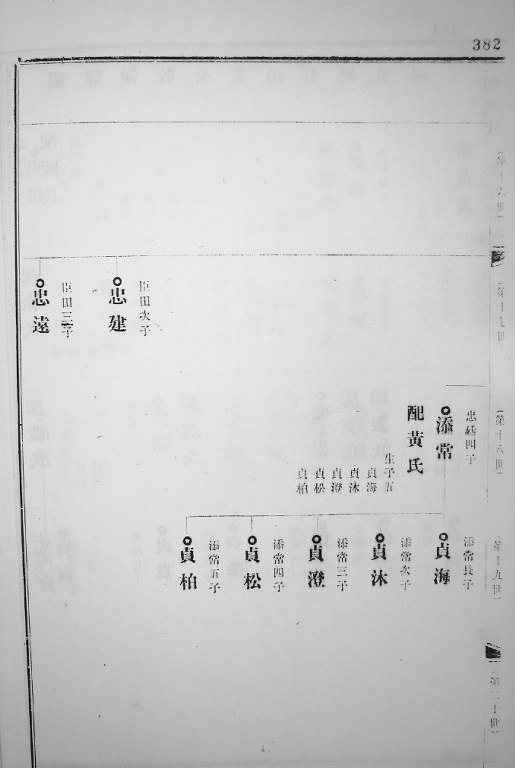 382
忠建
臣田次子
忠遠
臣田三子
添常
四子
配黃氏
生子五
貞海
貞沐
貞澄
貞松
貞柏
貞海
添常長子
貞沐
添常次子
貞澄
添常三子
貞松
添常四子
貞柏
添常五子
第十八世
第十九世
第二十世